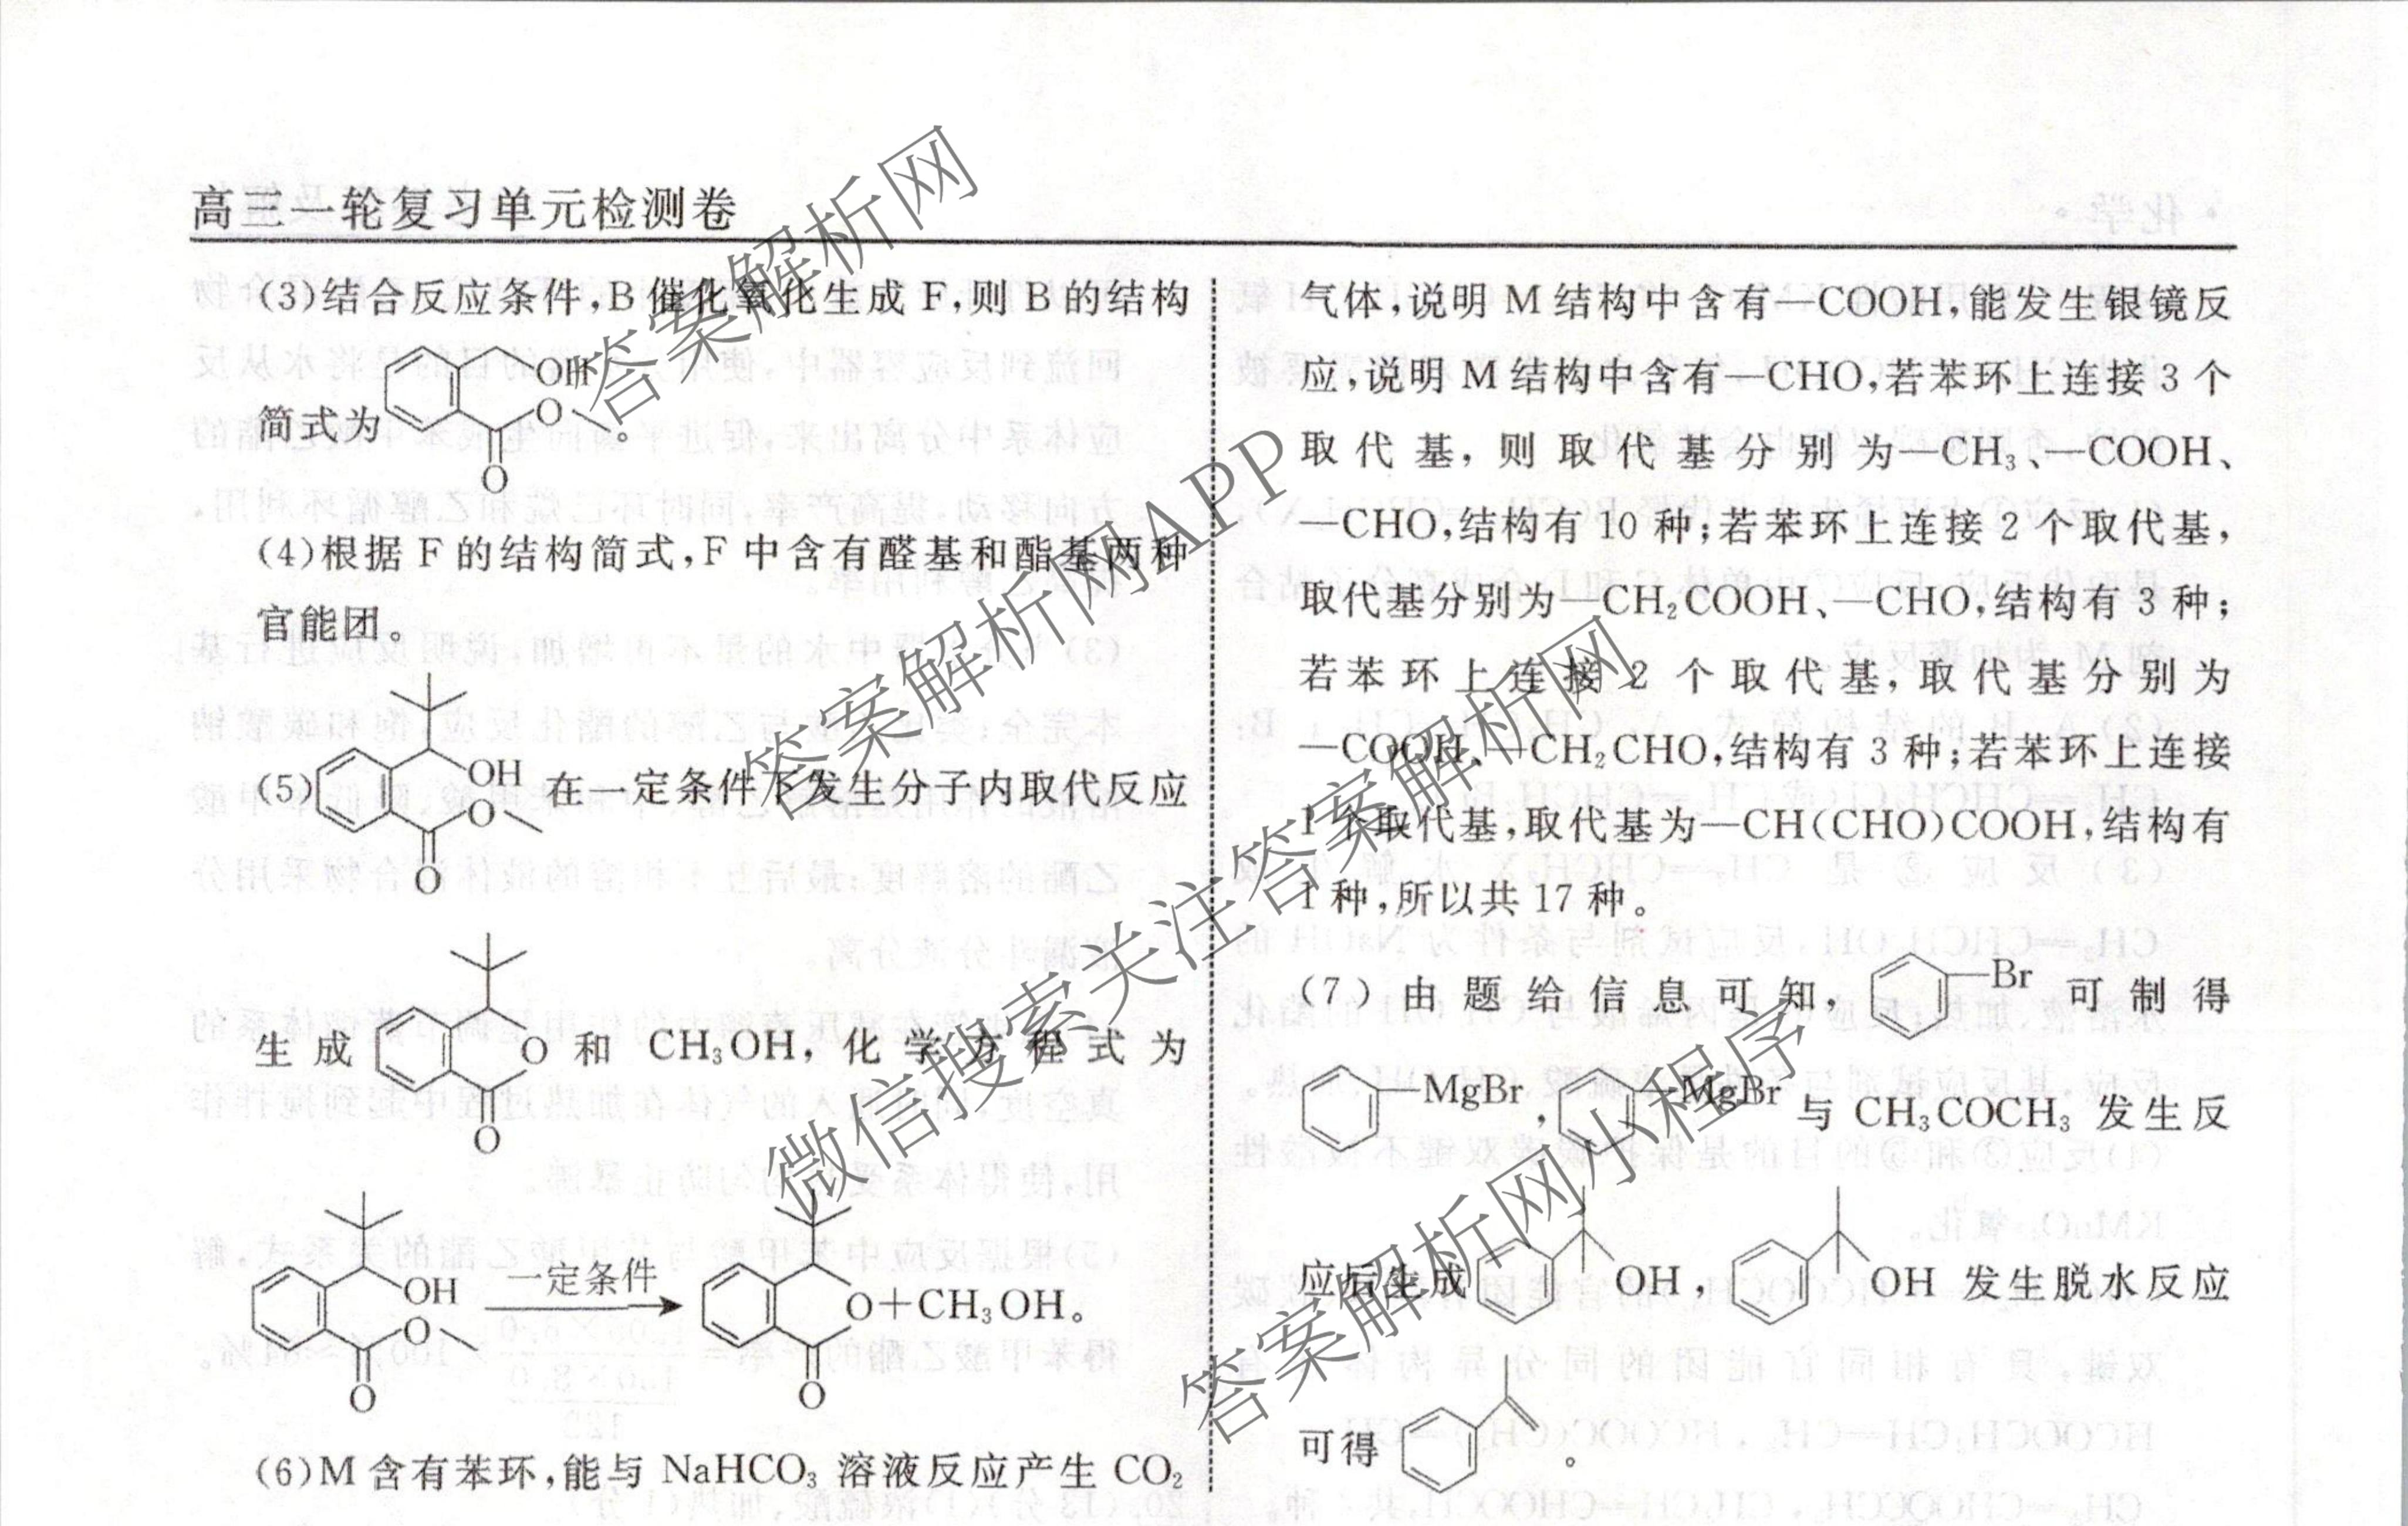 高三一轮复习单元检测卷
(3)结合反应条件,B催化氧化生成F,则B的结构
OH
简式为
O
。
O
(4)根据F的结构简式,F中含有醛基和酯基两种
官能团。
(5)
OH
在一定条件下发生分子内取代反应
O
O
生成
O
和 CH₃OH,化学方程式为
O
OH
一定条件
O
O
O+CH₃OH。
O
(6)M含有苯环,能与 NaHCO₃ 溶液反应产生 CO₂
气体,说明M结构中含有—COOH,能发生银镜反
应,说明M结构中含有—CHO,若苯环上连接3个
取代基,则取代基分别为—CH₃、—COOH、
—CHO,结构有10种;若苯环上连接2个取代基,
取代基分别为—CH₂COOH、—CHO,结构有3种;
若苯环上连接2个取代基,取代基分别为
—COOH、—CH₂CHO,结构有3种;若苯环上连接
1个取代基,取代基为—CH(CHO)COOH,结构有
1种,所以共17种。
(7)由题给信息可知,
Br
可制得
MgBr
,
MgBr
与 CH₃COCH₃ 发生反
应后生成
OH,
OH
发生脱水反应
可得
。
答案解析网
答案解析网APP
微信搜索关注答案解析网
答案解析网小程序